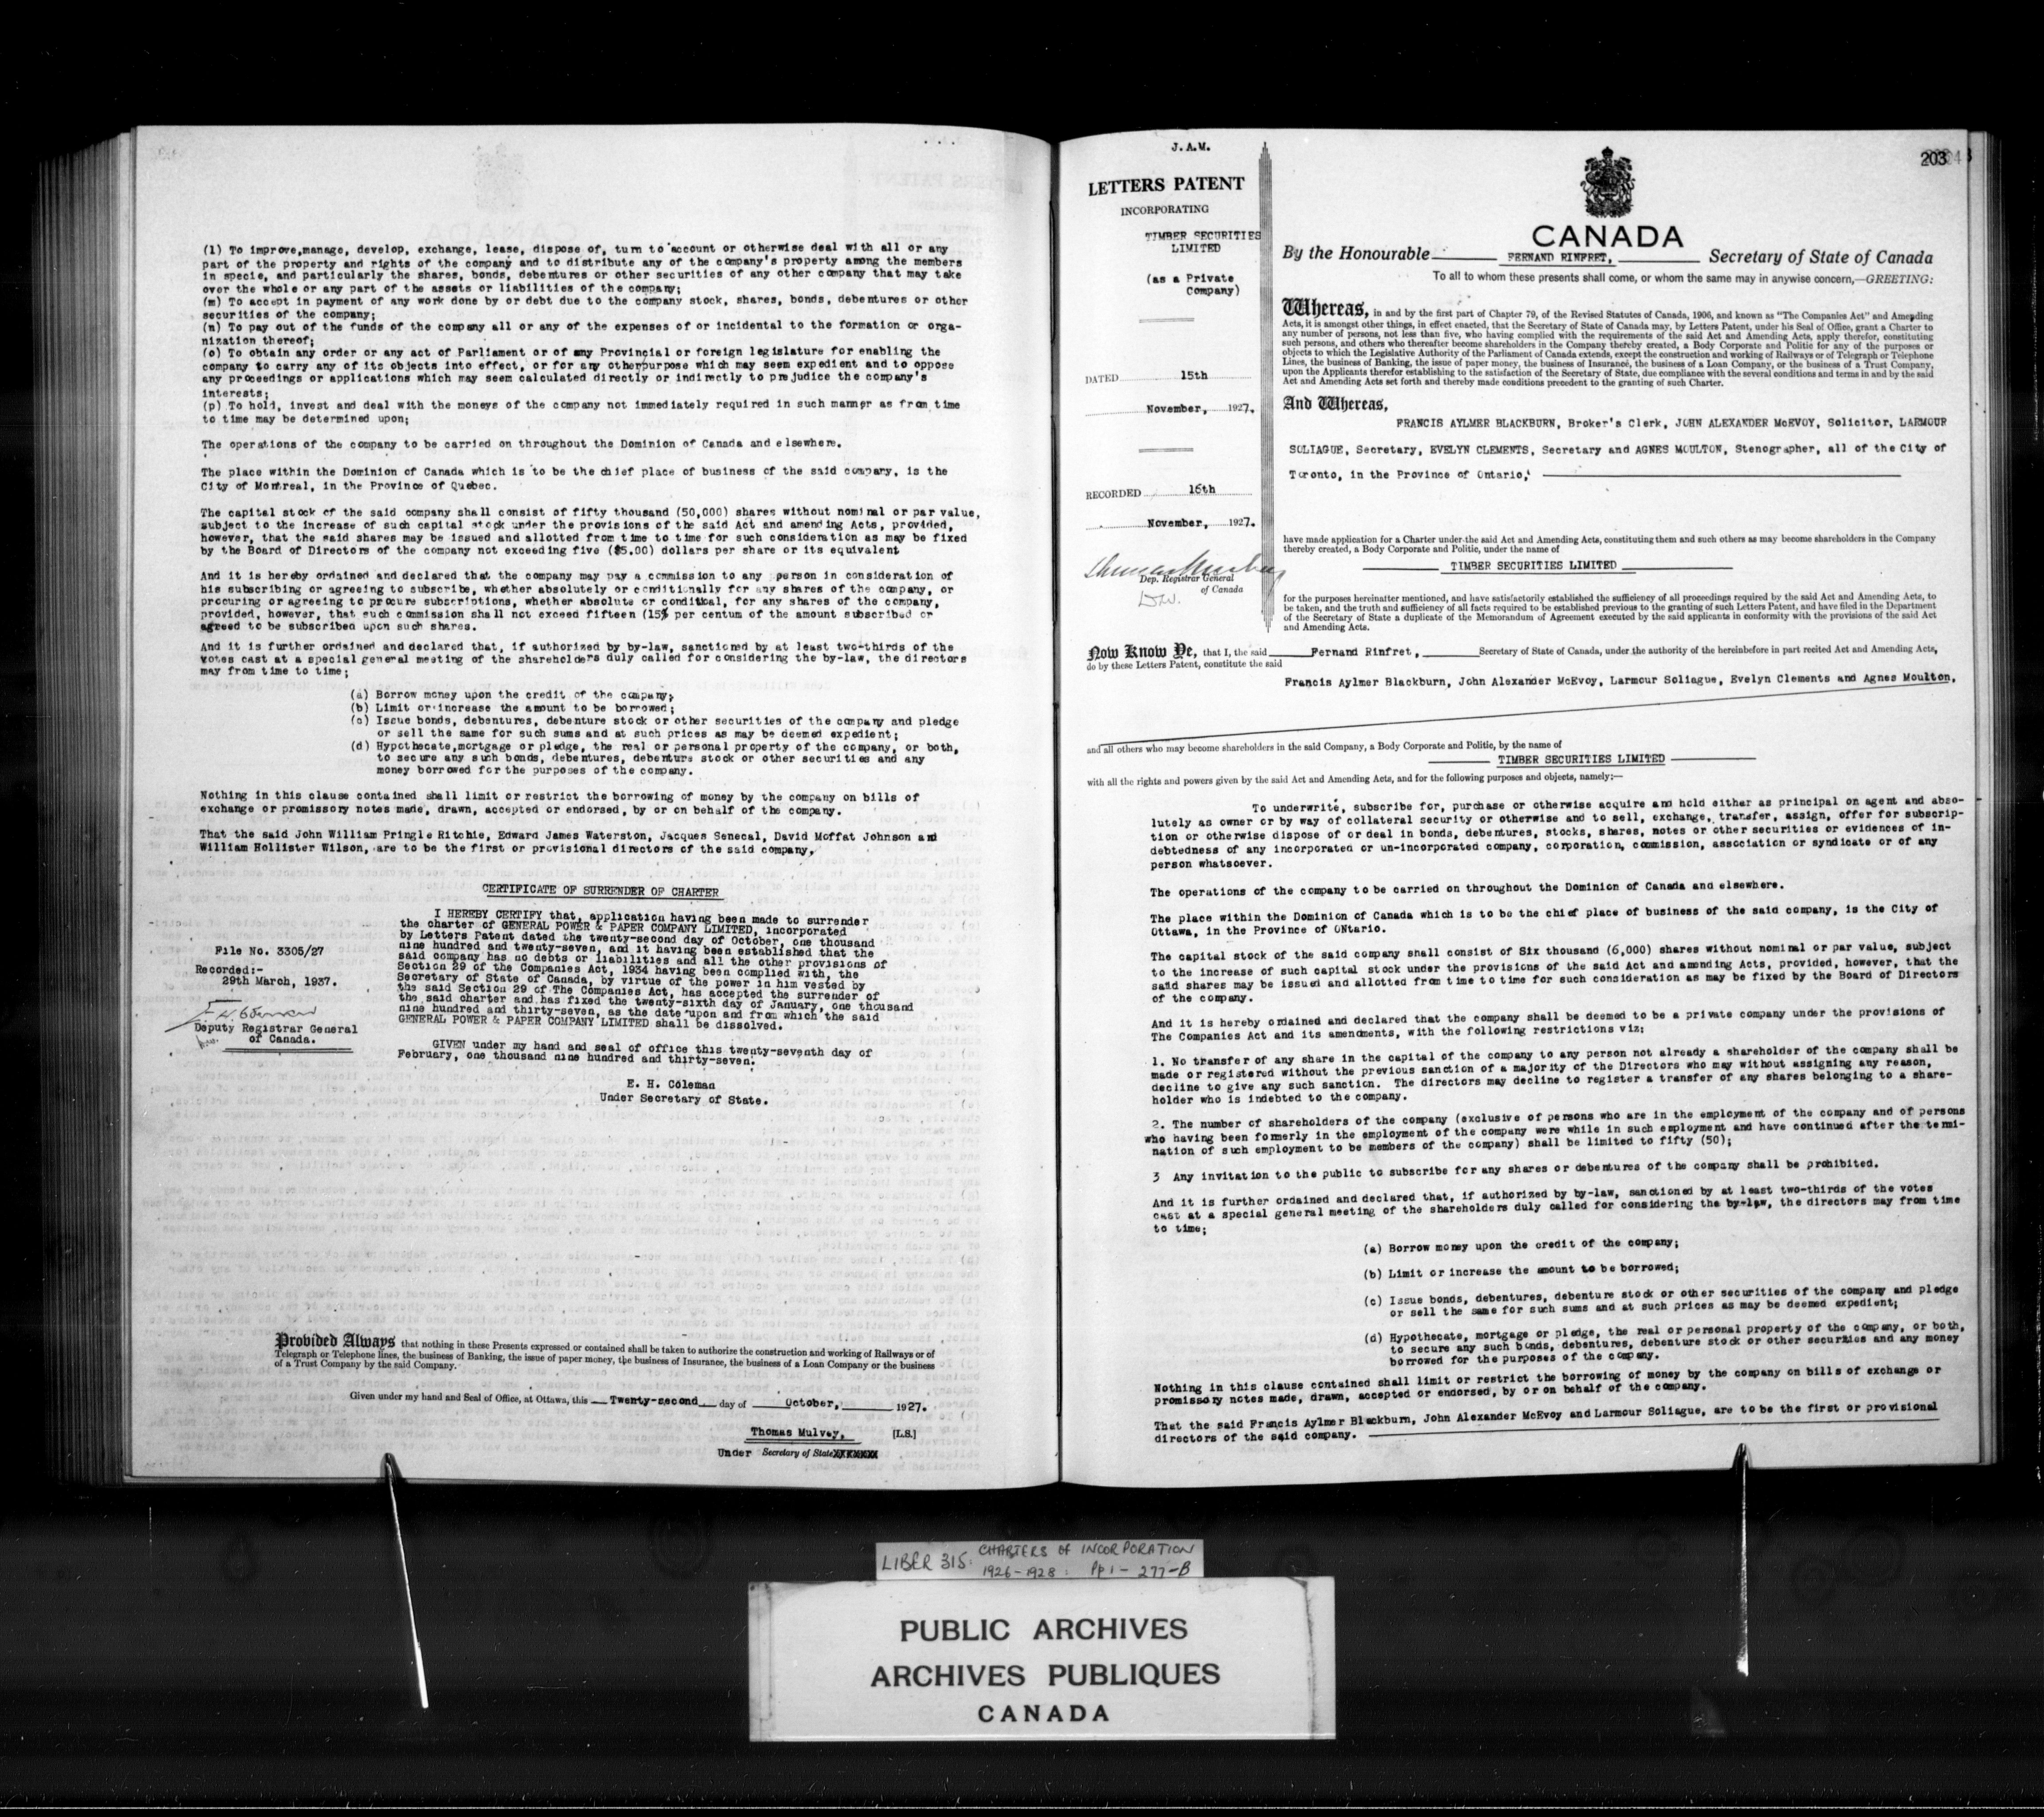 (l) To improve,manage, develop, exchange, lease, dispose of, turn to account or otherwise deal with all or any
part of the property and rights of the company and to distribute any of the company's property among the members
in specie, and particularly the shares, bonds, debentures or other securities of any other company that may take
over the whole or any part of the assets or liabilities of the company;
(m) To accept in payment of any work done by or debt due to the company stock, shares, bonds, debentures or other
securities of the company;
(n) To pay out of the funds of the company all or any of the expenses of or incidental to the formation or orga-
nization thereof;
(o) To obtain any order or any act of Parliament or of any Provincial or foreign legislature for enabling the
company to carry any of its objects into effect, or for any otherpurpose which may seem expedient and to oppose
any proceedings or applications which may seem calculated directly or indirectly to prejudice the company's
interests;
(p) To hold, invest and deal with the moneys of the company not immediately required in such manner as from time
to time may be determined upon;
The operations of the company to be carried on throughout the Dominion of Canada and elsewhere.
The place within the Dominion of Canada which is to be the chief place of business of the said company, is the
City of Montreal, in the Province of Quebec.
The capital stock of the said company shall consist of fifty thousand (50,000) shares without nominal or par value,
subject to the increase of such capital stock under the provisions of the said Act and amending Acts, provided,
however, that the said shares may be issued and allotted from time to time for such consideration as may be fixed
by the Board of Directors of the company not exceeding five ($5.00) dollars per share or its equivalent
And it is hereby ordained and declared that the company may pay a commission to any person in consideration of
his subscribing or agreeing to subscribe, whether absolutely or conditionally for any shares of the company, or
procuring or agreeing to procure subscriptions, whether absolute or conditical, for any shares of the company,
provided, however, that such commission shall not exceed fifteen (15% per centum of the amount subscribed or
agreed to be subscribed upon such shares.
And it is further ordained and declared that, if authorized by by-law, sanctioned by at least two-thirds of the
votes cast at a special general meeting of the shareholders duly called for considering the by-law, the directors
may from time to time;
(a) Borrow money upon the credit of the company;
(b) Limit or increase the amount to be borrowed;
(c) Issue bonds, debentures, debenture stock or other securities of the company and pledge
or sell the same for such sums and at such prices as may be deemed expedient;
(d) Hypothecate,mortgage or pledge, the real or personal property of the company, or both,
to secure any such bonds, debentures, debenture stock or other securities and any
money borrowed for the purposes of the company.
Nothing in this clause contained shall limit or restrict the borrowing of money by the company on bills of
exchange or promissory notes made, drawn, accepted or endorsed, by or on behalf of the company.
That the said John William Pringle Ritchie, Edward James Waterston, Jacques Senecal, David Moffat Johnson and
William Hollister Wilson, are to be the first or provisional directors of the said company,
CERTIFICATE OF SURRENDER OF CHARTER
I HEREBY CERTIFY that, application having been made to surrender
the charter of GENERAL POWER & PAPER COMPANY LIMITED, incorporated
by Letters Patent dated the twenty-second day of October, one thousand
nine hundred and twenty-seven, and it having been established that the
said company has no debts or liabilities and all the other provisions of
Section 29 of the Companies Act, 1934 having been complied with, the
Secretary of State of Canada, by virtue of the power in him vested by
the said Section 29 of The Companies Act, has accepted the surrender of
the said charter and has fixed the twenty-sixth day of January, one thousand
nine hundred and thirty-seven, as the date upon and from which the said
GENERAL POWER & PAPER COMPANY LIMITED shall be dissolved.
GIVEN under my hand and seal of office this twenty-seventh day of
February, one thousand nine hundred and thirty-seven.
E. H. Coleman
Under Secretary of State.
File No. 3305/27
Recorded:-
29th March, 1937.
Deputy Registrar General
of Canada.
Provided Always that nothing in these Presents expressed or contained shall be taken to authorize the construction and working of Railways or of
Telegraph or Telephone lines, the business of Banking, the issue of paper money, the business of Insurance, the business of a Loan Company or the business
of a Trust Company by the said Company.
Given under my hand and Seal of Office, at Ottawa, this Twenty-second day of October, 1927.
Thomas Mulvey, [L.S.]
Under Secretary of State
J.A.M.
LETTERS PATENT
INCORPORATING
TIMBER SECURITIES
LIMITED
(as a Private
Company)
DATED 15th
November, 1927.
RECORDED 16th
November, 1927.
Dep. Registrar General
of Canada
203
CANADA
By the Honourable FERNAND RINFRET, Secretary of State of Canada
To all to whom these presents shall come, or whom the same may in anywise concern,—GREETING:
Whereas, in and by the first part of Chapter 79, of the Revised Statutes of Canada, 1906, and known as "The Companies Act" and Amending
Acts, it is amongst other things, in effect enacted, that the Secretary of State of Canada may, by Letters Patent, under his Seal of Office, grant a Charter to
any number of persons, not less than five, who having complied with the requirements of the said Act and Amending Acts, apply therefor, constituting
such persons, and others who thereafter become shareholders in the Company thereby created, a Body Corporate and Politic for any of the purposes or
objects to which the Legislative Authority of the Parliament of Canada extends, except the construction and working of Railways or of Telegraph or Telephone
Lines, the business of Banking, the issue of paper money, the business of Insurance, the business of a Loan Company, or the business of a Trust Company,
upon the Applicants therefor establishing to the satisfaction of the Secretary of State, due compliance with the several conditions and terms in and by the said
Act and Amending Acts set forth and thereby made conditions precedent to the granting of such Charter.
And Whereas,
FRANCIS AYLMER BLACKBURN, Broker's Clerk, JOHN ALEXANDER McEVOY, Solicitor, LARMOUR
SOLIAGUE, Secretary, EVELYN CLEMENTS, Secretary and AGNES MOULTON, Stenographer, all of the City of
Toronto, in the Province of Ontario,
have made application for a Charter under the said Act and Amending Acts, constituting them and such others as may become shareholders in the Company
thereby created, a Body Corporate and Politic, under the name of
TIMBER SECURITIES LIMITED
for the purposes hereinafter mentioned, and have satisfactorily established the sufficiency of all proceedings required by the said Act and Amending Acts, to
be taken, and the truth and sufficiency of all facts required to be established previous to the granting of such Letters Patent, and have filed in the Department
of the Secretary of State a duplicate of the Memorandum of Agreement executed by the said applicants in conformity with the provisions of the said Act
and Amending Acts.
Now Know Ye, that I, the said Fernand Rinfret, Secretary of State of Canada, under the authority of the hereinbefore in part recited Act and Amending Acts,
do by these Letters Patent, constitute the said
Francis Aylmer Blackburn, John Alexander McEvoy, Larmour Soliague, Evelyn Clements and Agnes Moulton,
and all others who may become shareholders in the said Company, a Body Corporate and Politic, by the name of
TIMBER SECURITIES LIMITED
with all the rights and powers given by the said Act and Amending Acts, and for the following purposes and objects, namely:—
To underwrite, subscribe for, purchase or otherwise acquire and hold either as principal or agent and abso-
lutely as owner or by way of collateral security or otherwise and to sell, exchange, transfer, assign, offer for subscrip-
tion or otherwise dispose of or deal in bonds, debentures, stocks, shares, notes or other securities or evidences of in-
debtedness of any incorporated or un-incorporated company, corporation, commission, association or syndicate or of any
person whatsoever.
The operations of the company to be carried on throughout the Dominion of Canada and elsewhere.
The place within the Dominion of Canada which is to be the chief place of business of the said company, is the City of
Ottawa, in the Province of ONtario.
The capital stock of the said company shall consist of Six thousand (6,000) shares without nominal or par value, subject
to the increase of such capital stock under the provisions of the said Act and amending Acts, provided, however, that the
said shares may be issued and allotted from time to time for such consideration as may be fixed by the Board of Directors
of the company.
And it is hereby ordained and declared that the company shall be deemed to be a private company under the provisions of
The Companies Act and its amendments, with the following restrictions viz:
1. No transfer of any share in the capital of the company to any person not already a shareholder of the company shall be
made or registered without the previous sanction of a majority of the Directors who may without assigning any reason,
decline to give any such sanction. The directors may decline to register a transfer of any shares belonging to a share-
holder who is indebted to the company.
2. The number of shareholders of the company (exclusive of persons who are in the employment of the company and of persons
who having been formerly in the employment of the company were while in such employment and have continued after the termi-
nation of such employment to be members of the company) shall be limited to fifty (50);
3 Any invitation to the public to subscribe for any shares or debentures of the company shall be prohibited.
And it is further ordained and declared that, if authorized by by-law, sanctioned by at least two-thirds of the votes
cast at a special general meeting of the shareholders duly called for considering the by-law, the directors may from time
to time;
(a) Borrow money upon the credit of the company;
(b) Limit or increase the amount to be borrowed;
(c) Issue bonds, debentures, debenture stock or other securities of the company and pledge
or sell the same for such sums and at such prices as may be deemed expedient;
(d) Hypothecate, mortgage or pledge, the real or personal property of the company, or both,
to secure any such bonds, debentures, debenture stock or other securities and any money
borrowed for the purposes of the company.
Nothing in this clause contained shall limit or restrict the borrowing of money by the company on bills of exchange or
promissory notes made, drawn, accepted or endorsed, by or on behalf of the company.
That the said Francis Aylmer Blackburn, John Alexander McEvoy and Larmour Soliague, are to be the first or provisional
directors of the said company.
LIBER 315: CHARTERS OF INCORPORATION
1926-1928: Pp 1-277-B
PUBLIC ARCHIVES
ARCHIVES PUBLIQUES
CANADA